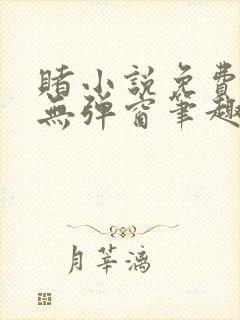 賭小説免費
無彈窗筆趣
月華漓